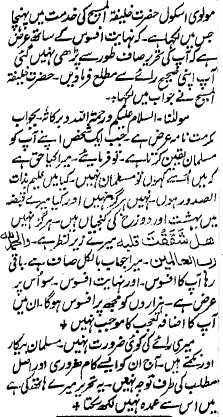 مولوی اسکول حضرت خلیفۃ المسیح کی خدمت میں پہنچا
جس میں لکھا ہے۔ کہ نہایت افسوس کے ساتھ عرض
ہے کہ آپ کی تحریر صاف طور سے پڑھی نہیں گئی
آپ اپنی صحیح رائے سے مطلع فرماویں۔ حضرت خلیفۃ
المسیح نے جواب میں لکھا ہے۔
مولٰنا۔ السلام علیکم ورحمۃ اللہ وبرکاتہ۔ بجواب
کرمت نامہ عرض ہے کہ جب ایک شخص اپنے آپ کو
مسلمان یقین کرتا ہے۔ تو فرمائیے۔ میرا کیا حق ہے
کہ میں اسے کہوں تو مسلمان نہیں۔ کیا میں علیم بذات
الصدور ہوں۔ ہرگز نہیں۔ ہرگز نہیں اور کیا میرے قبضہ
میں بہشت اور دوزخ کی کنجیاں ہیں۔ ہرگز نہیں
ھل شققت قلبہ میرے زیر نظر ہے۔ والحمد للہ
رب العالمین۔ میرا جواب بالکل صاف ہے۔ باقی
رہا آپ کا افسوس۔ اور نہایت افسوس۔ سو اس پر
عرض ہے۔ ہزاروں کو مجھ پر افسوس ہوگا۔ ان میں
آپ کا اضافہ تعجب کا موجب نہیں
میری رائے کی کوئی ضرورت نہیں۔ مسلمان بیکار
اور نکمے ہیں۔ آج ان کو ایسے کام ضروری اور اصل
مطلب کی طرف توجہ نہیں۔ یہ تحریر میرے ہاتھ کی ہے
میں اس سے عمدہ نہیں لکھ سکتا